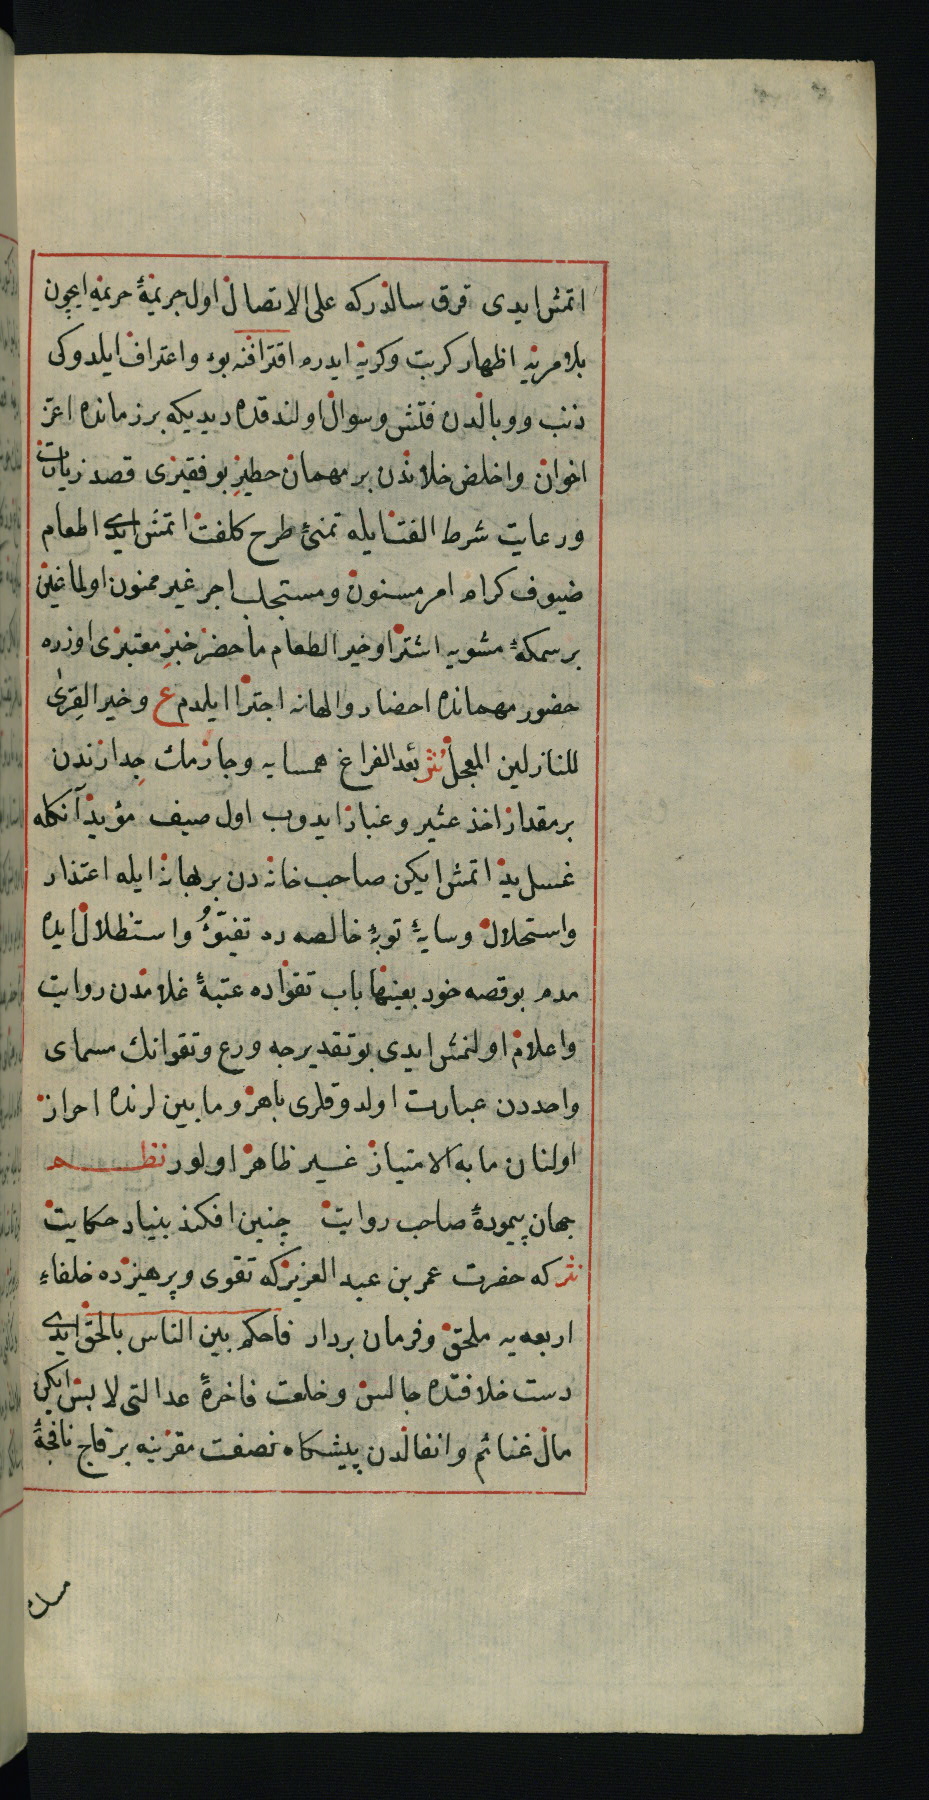 اتمش ایدی قرق سالدركه علی الاتصال اول جریمهٔ حریمه ایچون
بلا مریه اظهار كربت وكریه ایدرم اقترافنه بوء واعتراف ایلدوكی
ذنب ووبالدن فتش وسؤال اولندقده دیدیكه بر زمانده اعز
اخوان واخلص خلاندن بر مهمان خطیر بو فقیری قصد زیارت
ورعایت شرط الفت ایله تمنئ طرح كلفت اتمش ایدی اطعام
ضیوف كرام امر مسنون ومستجلب اجر غیر ممنون اولماغین
بر سمكهٔ مشویه اشترا وخیر الطعام ما حضر خبر معتبری اوزره
حضور مهمانده احضار والهانه اجترا ایلدم ع وخیر القری
للنازلین المعجل نثر بعد الفراغ همسایه وجارمك جدارندن
بر مقدار اخذ عثیر وغبار ایدوب اول ضیف مؤید آنكله
غسل ید اتمش ایكن صاحب خانه دن بر بهانه ایله اعتذار
واستحلال وسایهٔ توبهٔ خالصه ده تفیّؤ واستظلال ایده
مدم بو قصه خود بعینها باب تقواده عتبهٔ غلامدن روایت
واعلام اولنمش ایدی بو تقدیرجه ورع وتقوانك مسمای
واحددن عبارت اولدوقلری باهر وما بین لرنده احراز
اولنان ما به الامتیاز غیر ظاهر اولور نظم
جهان پیمودهٔ صاحب روایت چنین افكند بنیاد حكایت
نثر كه حضرت عمر بن عبد العزیز كه تقوی وپرهیزده خلفاء
اربعه یه ملحق وفرمان بردار فاحكم بین الناس بالحق ایدی
دست خلافتده جالس وخلعت فاخرهٔ عدالتی لابس ایكن
مال غنائم وانفالدن پیشگاه نصفت مقرینه بر قاچ نافجهٔ
مسك